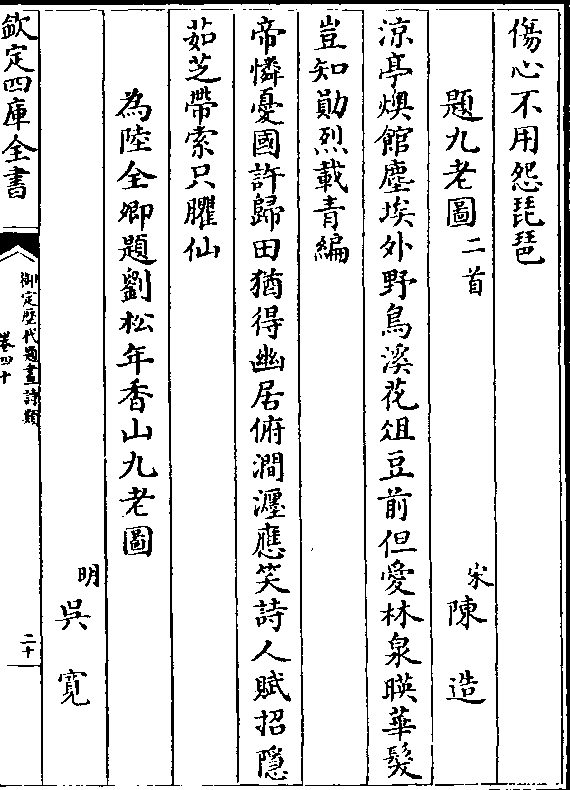 傷心不用怨琵琶
題九老圖二首
宋陳造
涼亭燠館塵埃外野鳥溪花俎豆前但愛林泉暎華髮
豈知勛烈載青編
帝憐憂國許歸田猶得幽居俯澗瀍應笑詩人賦招隱
茹芝帶索只臞仙
為陸全卿題劉松年香山九老圖
明吳寛
欽定四庫全書
御定歷代題畫詩類
卷四十
二十